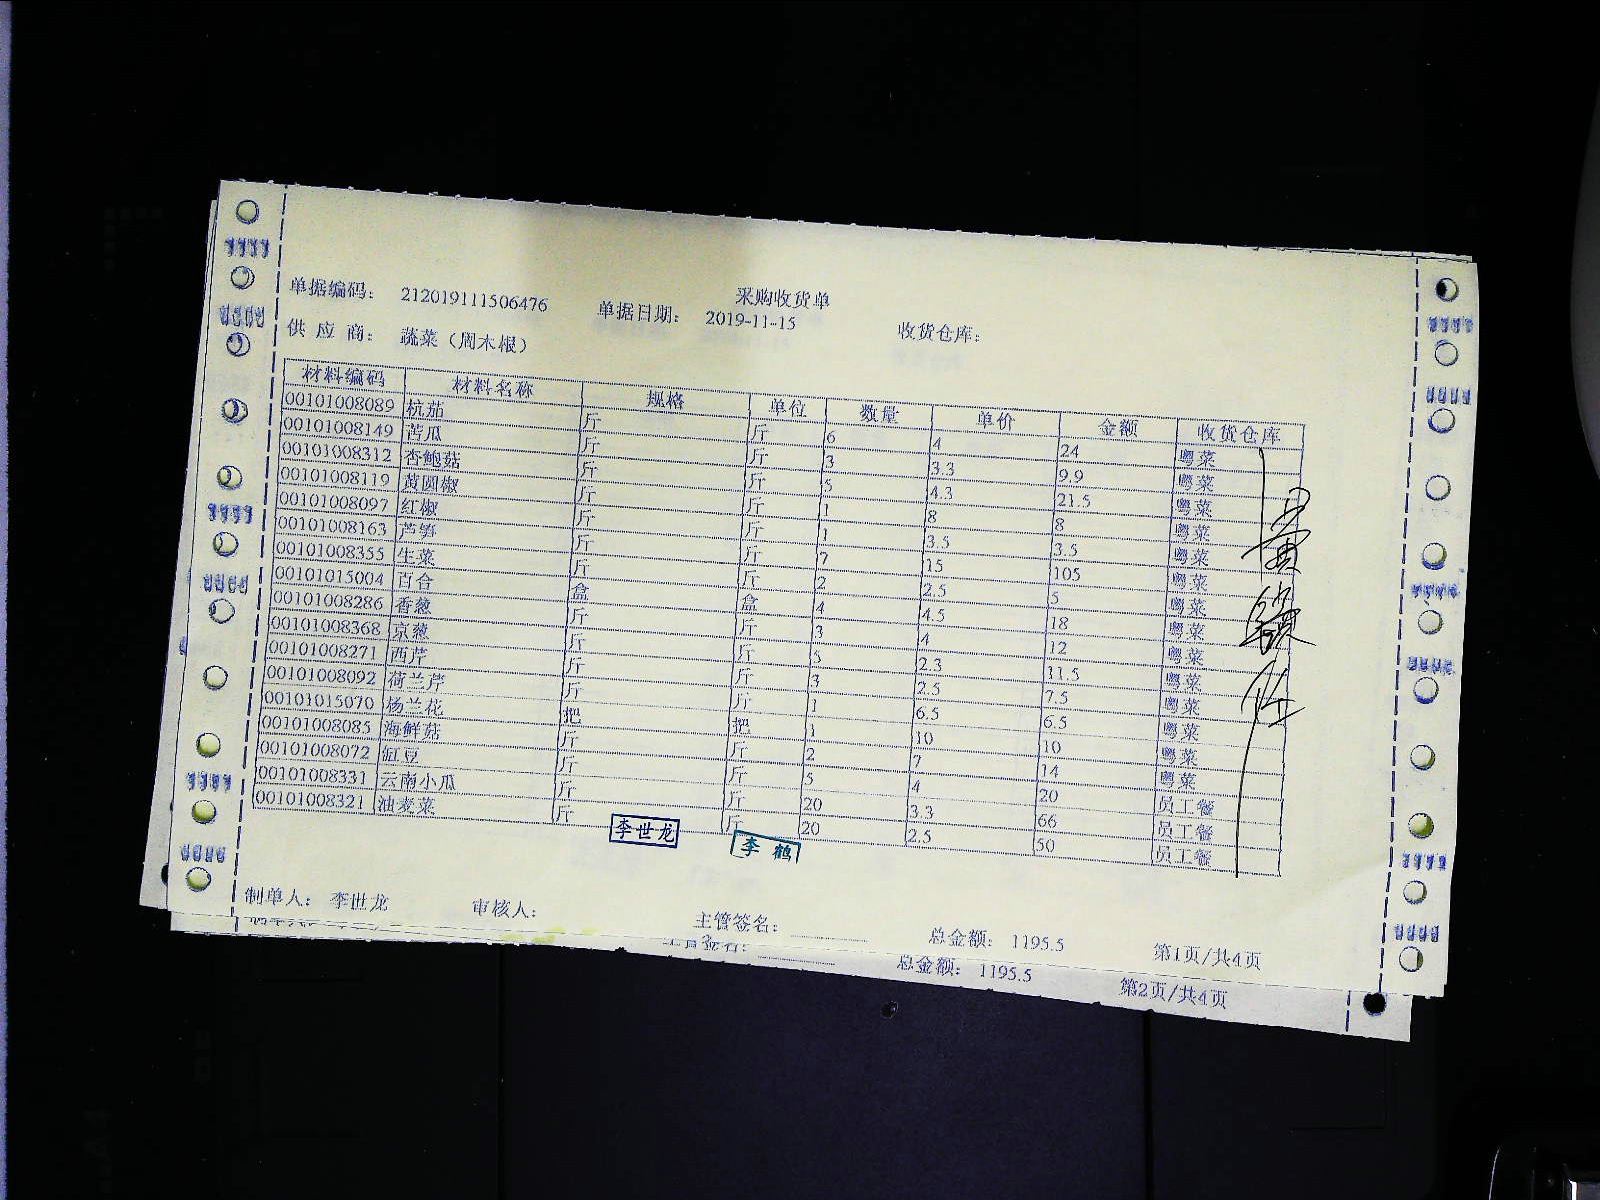 采购收货单
单据编码： 212019111506476 单据日期： 2019-11-15 收货仓库：
供 应 商： 蔬菜（周木根）
材料编码 材料名称 规格 单位 数量 单价 金额 收货仓库
00101008089 杭茄 斤 斤 6 4 24 粤菜
00101008149 苦瓜 斤 斤 3 3.3 9.9 粤菜
00101008312 杏鲍菇 斤 斤 5 4.3 21.5 粤菜
00101008119 黄圆椒 斤 斤 1 8 8 粤菜
00101008097 红椒 斤 斤 1 3.5 3.5 粤菜
00101008163 芦笋 斤 斤 7 15 105 粤菜
00101008355 生菜 斤 斤 2 2.5 5 粤菜
00101015004 百合 盒 盒 4 4.5 18 粤菜
00101008286 香葱 斤 斤 3 4 12 粤菜
00101008368 京葱 斤 斤 5 2.3 11.5 粤菜
00101008271 西芹 斤 斤 3 2.5 7.5 粤菜
00101008092 荷兰芹 斤 斤 1 6.5 6.5 粤菜
00101015070 杨兰花 把 把 1 10 10 粤菜
00101008085 海鲜菇 斤 斤 2 7 14 粤菜
00101008072 缸豆 斤 斤 5 4 20 员工餐
00101008331 云南小瓜 斤 斤 20 3.3 66 员工餐
00101008321 油麦菜 斤 斤 20 2.5 50 员工餐
李世龙 李鹤
制单人： 李世龙 审核人： 主管签名： 总金额： 1195.5 第1页/共4页
主管签名： 总金额： 1195.5 第2页/共4页